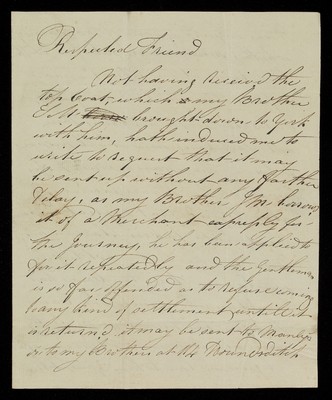 Respected Friend
Not having received the
top Coat, which my Brother
brought down to York
with him, hath induced me to
write to request that it may
be sent up without any farther
delay, as my Brother Jm borrow'd
it of a Merchant expressly for
the Journey, he has been applied to
for it repeatedly and the Gentleman
is so far offended as to refuse coming
to any kind of settlement untill it
is return'd, it may be sent to
or to my Brothers at No 4 Houndsditch